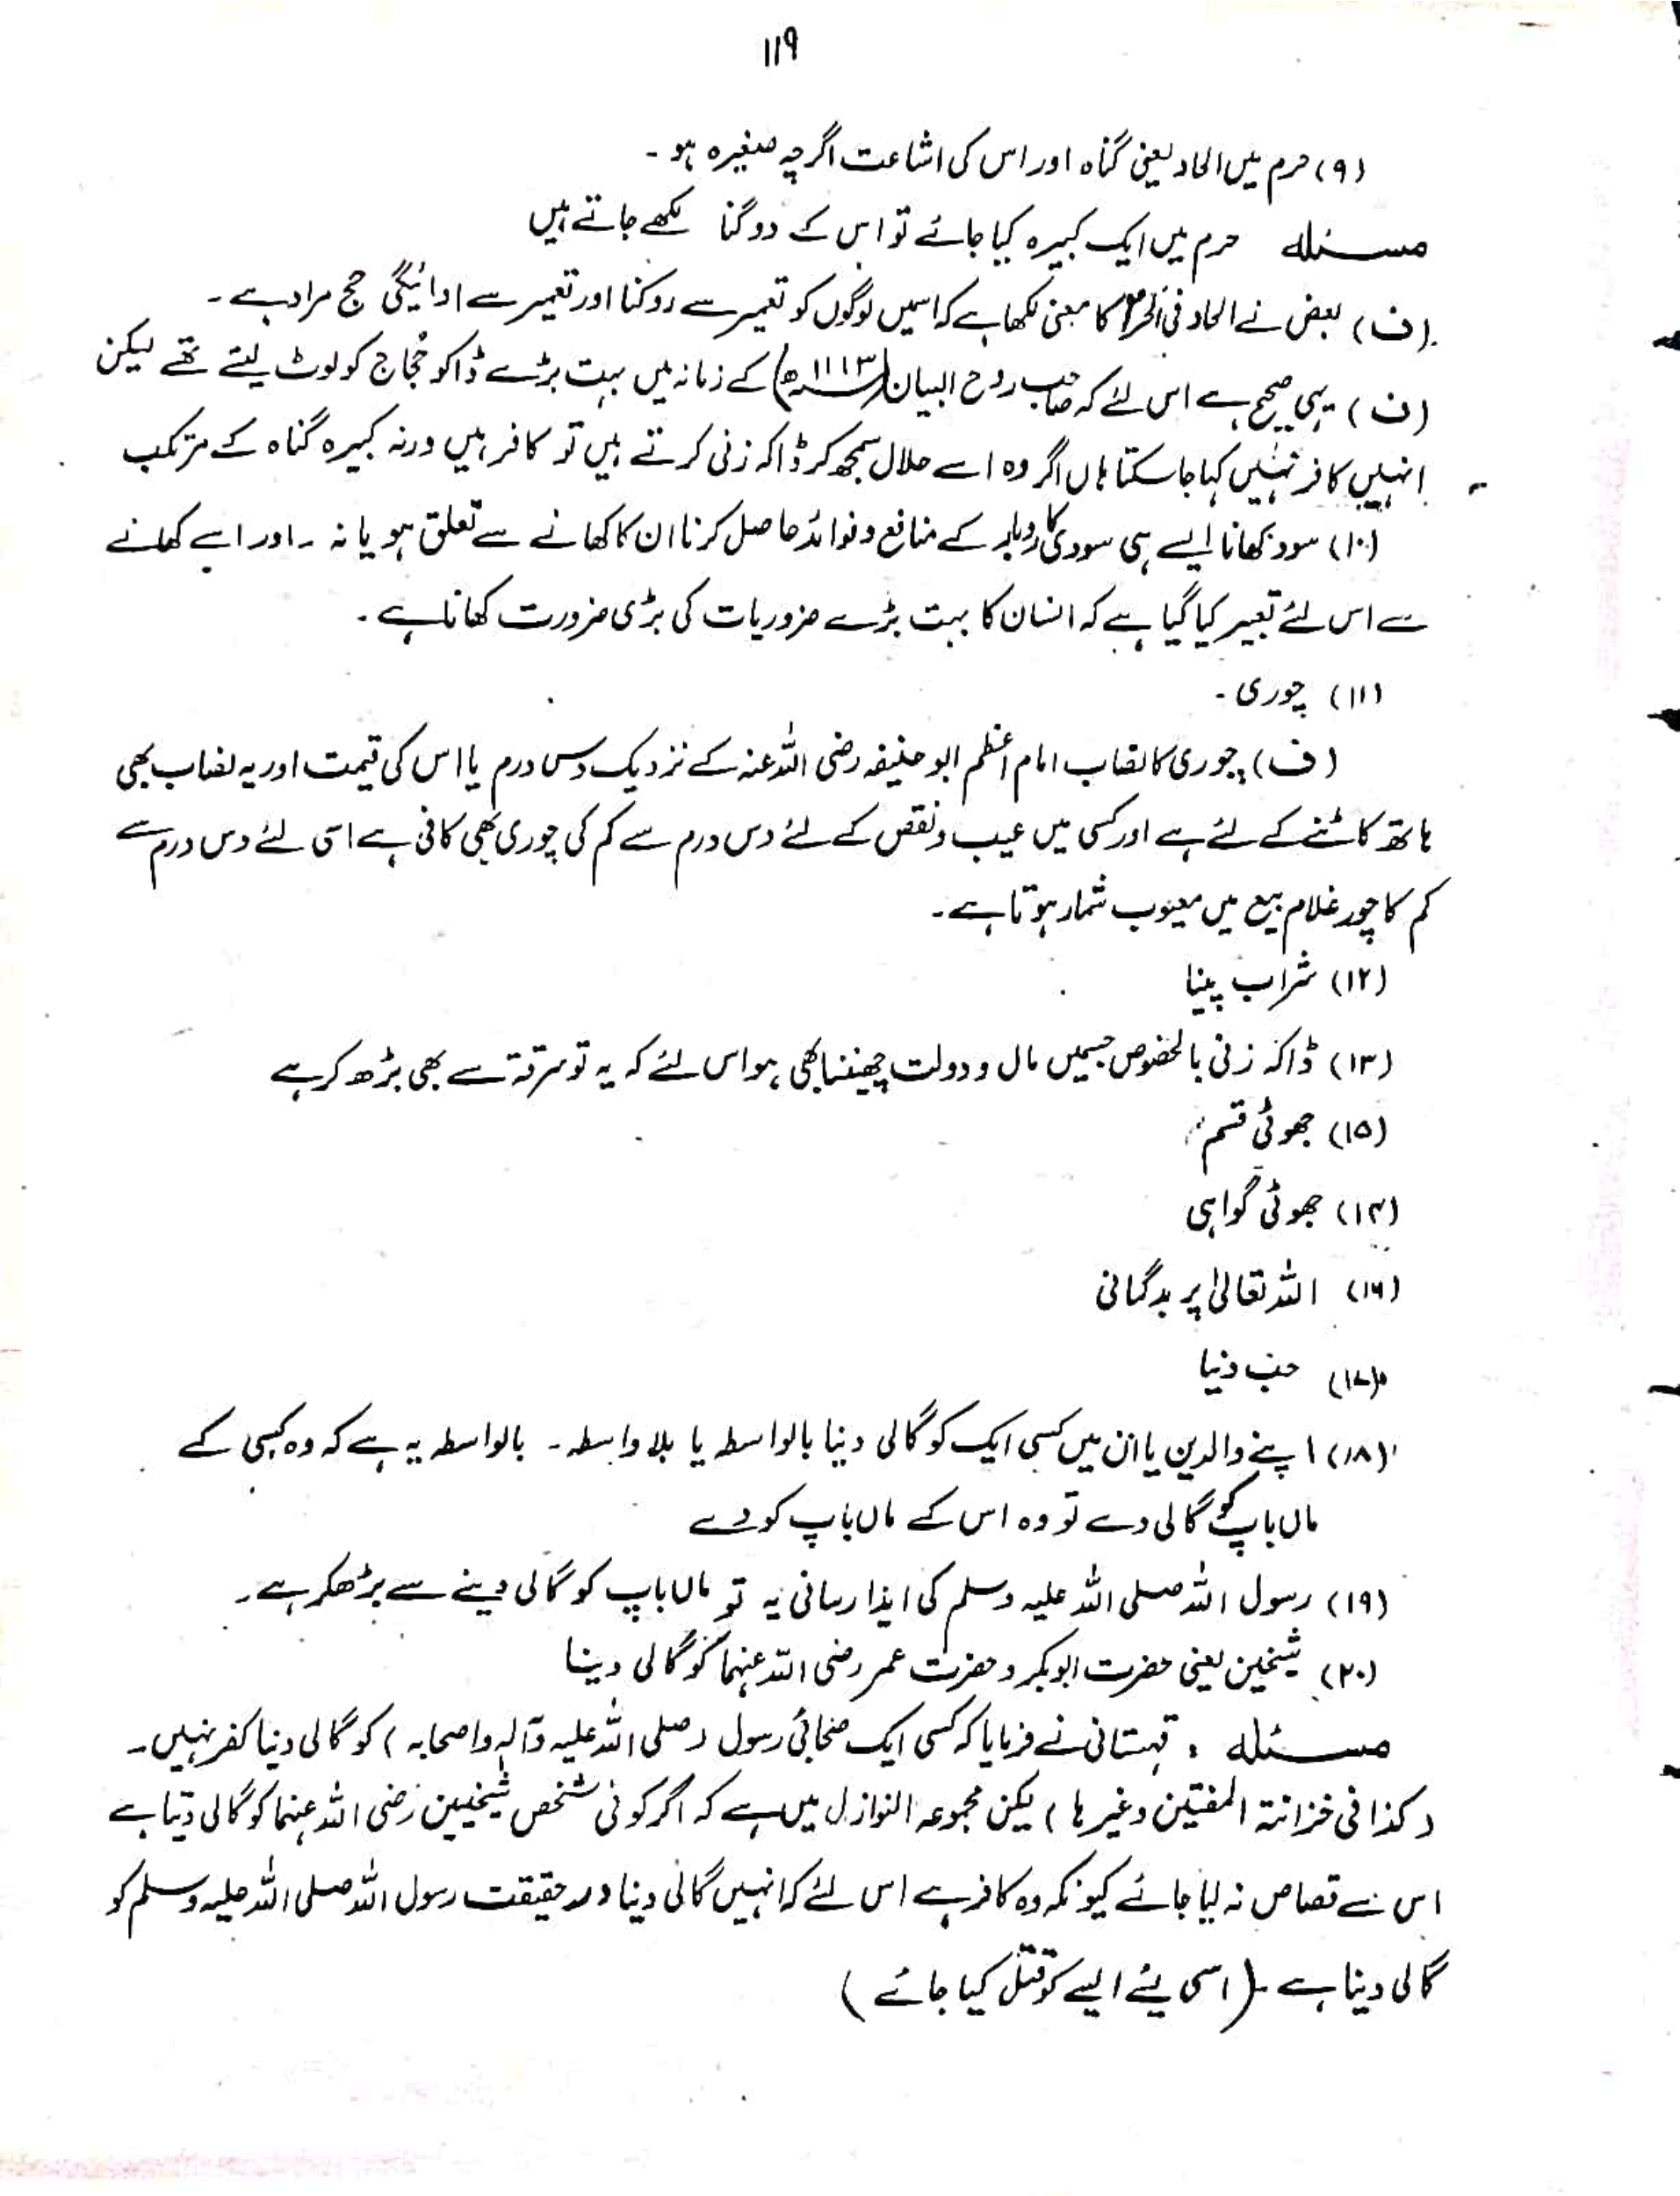 ۱۱۹
(۹) حرم میں الحاد یعنی گناہ اور اس کی اشاعت اگرچہ صغیرہ ہو ۔
مسئلہ حرم میں ایک کبیرہ کیا جائے تو اس کے دو گنا لکھے جاتے ہیں
(ف) بعض نے الحاد فی الحرم کا معنی لکھا ہے کہ اسمیں لوگوں کو تعمیر سے روکنا اور تعمیر سے ادائیگی حج مراد ہے ۔
(ف) یہی صحیح ہے اس لئے کہ صاحب روح البیان (۱۱۱۳ھ) کے زمانہ میں بہت بڑے ڈاکو حُجاج کو لوٹ لیتے تھے لیکن
انہیں کافر نہیں کہا جا سکتا ہاں اگر وہ اسے حلال سمجھ کر ڈاکہ زنی کرتے ہیں تو کافر ہیں ورنہ کبیرہ گناہ کے مرتکب
(۱۰) سود کھانا ایسے ہی سودی کاروبار کے منافع و فوائد حاصل کرنا ان کا کھانے سے تعلق ہو یا نہ ۔ اور اسے کھانے
سے اس لئے تعبیر کیا گیا ہے کہ انسان کا بہت بڑے ضروریات کی بڑی ضرورت کھانا ہے ۔
(۱۱) چوری ۔
(ف) چوری کا نصاب امام اعظم ابو حنیفہ رضی اللہ عنہ کے نزدیک دس درم یا اس کی قیمت اور یہ نصاب بھی
ہاتھ کاٹنے کے لئے ہے اور کسی میں عیب و نقص کے لئے دس درم سے کم کی چوری بھی کافی ہے اسی لئے دس درم سے
کم کا چور غلام بیع میں معیوب شمار ہوتا ہے ۔
(۱۲) شراب پینا
(۱۳) ڈاکہ زنی بالخصوص جسمیں مال و دولت چھیننا بھی ہو اس لئے کہ یہ تو سرقۃ سے بھی بڑھ کر ہے
(۱۵) جھوٹی قسم
(۱۴) جھوٹی گواہی
(۱۶) اللہ تعالیٰ پر بدگمانی
(۱۷) حب دنیا
(۱۸) اپنے والدین یا ان میں کسی ایک کو گالی دینا بالواسطہ یا بلا واسطہ ۔ بالواسطہ یہ ہے کہ وہ کسی کے
ماں باپ کو گالی دے تو وہ اس کے ماں باپ کو دے
(۱۹) رسول اللہ صلی اللہ علیہ وسلم کی ایذا رسانی یہ تو ماں باپ کو گالی دینے سے بڑھکر ہے ۔
(۲۰) شیخین یعنی حضرت ابوبکر و حضرت عمر رضی اللہ عنہما کو گالی دینا
مسئلہ ، قہستانی نے فرمایا کہ کسی ایک صحابیٔ رسول (صلی اللہ علیہ وآلہٖ واصحابہ) کو گالی دینا کفر نہیں ۔
(کذا فی خزانۃ المفتین وغیرہا) لیکن مجموعہ النوازل میں ہے کہ اگر کوئی شخص شیخین رضی اللہ عنہما کو گالی دیتا ہے
اس سے قصاص نہ لیا جائے کیونکہ وہ کافر ہے اس لئے کہ انہیں گالی دینا در حقیقت رسول اللہ صلی اللہ علیہ وسلم کو
گالی دینا ہے ۔ (اسی لئے ایسے کو قتل کیا جائے)